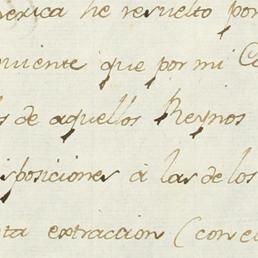 merica he resuelto por
niente que por mi C
s de aquellos Reynos
sposiciones à las de los
ta extraccion (con e